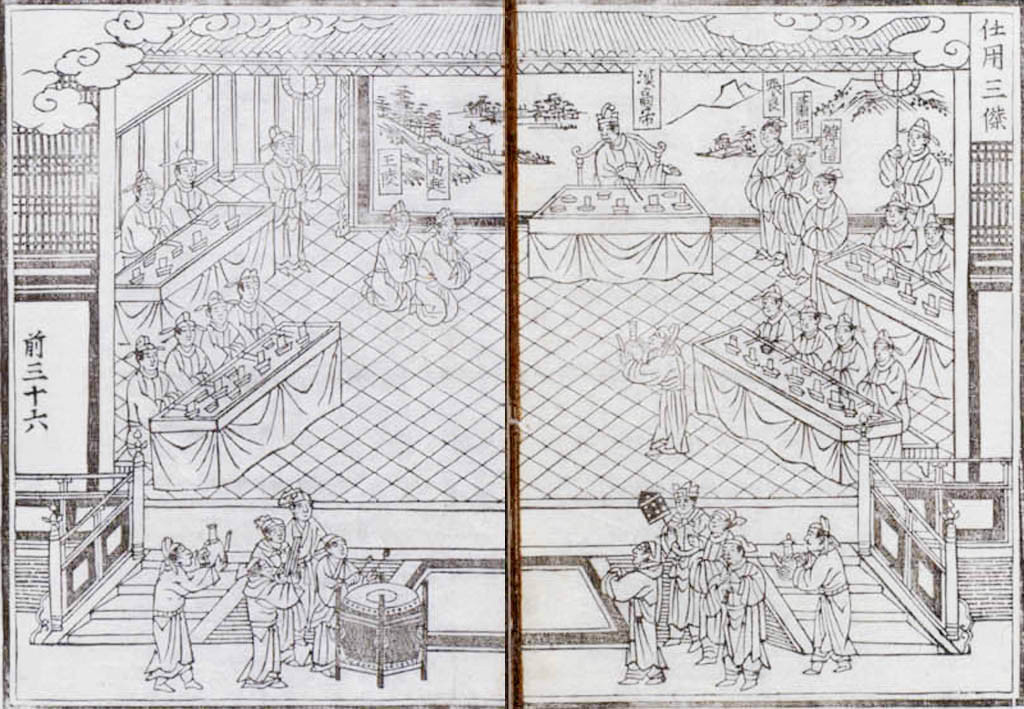 任用三傑
韓信
蕭何
張良
漢高帝
高起
王陵
前三十六